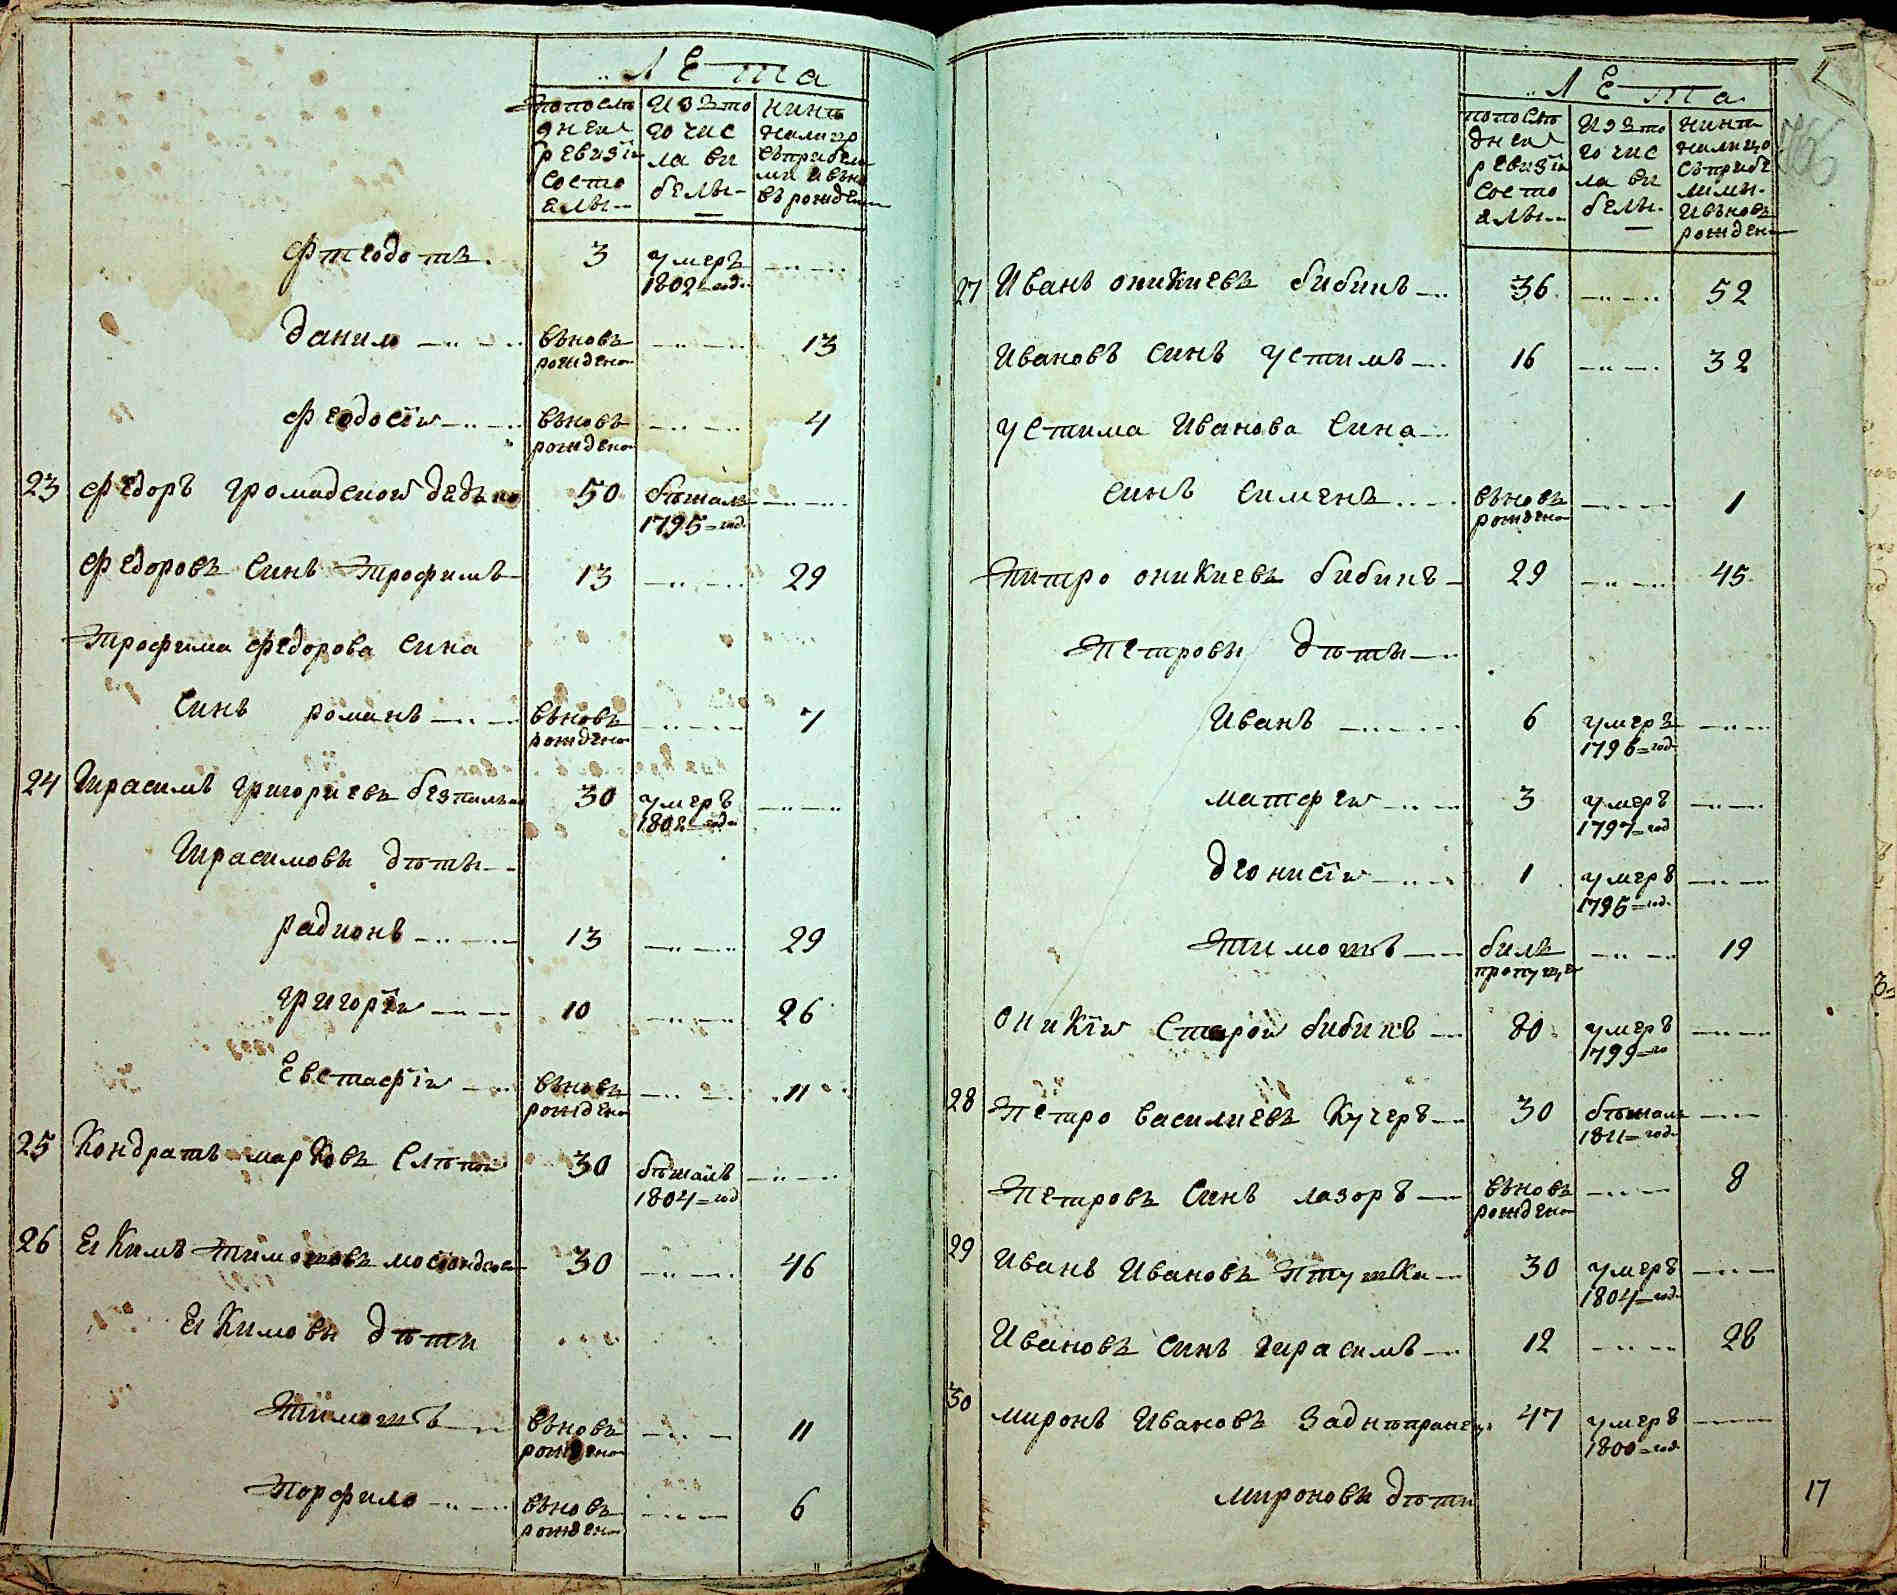 Лета
по послѣ дней ревизіи состо яли
изъ то го чис ла вы были
нинѣ на лицо съ прибы ми и внов ь рожден
Фтеодотъ 3 умеръ 1802 год.
Данило вѣновь рождено 13
Феодосій вѣновь рождено 4
23 Федоръ Громадской Дядько 50 бѣжалъ 1795 год.
Федоровъ синъ Трофимъ 13 29
Трофима Федорова сина
синъ Романъ вѣновь рождено 7
24 Гирасимъ Григориевъ 30 умеръ 1802 год.
Гирасимовы дѣти
Радионъ 13 29
Григорій 10 26
Евстафій вѣновь рождено 11
25 Кондратъ Марковъ Слѣпой 30 бѣжалъ 1804 год
26 Екимъ Тимошовъ 30 46
Екимовы дѣти
Тимошъ вѣновь рождено 11
Порфило вѣновь рождено 6
Лета
по послѣ дней ревизіи состо яли
изъ то го чис ла вы были
нинѣ на лицо съ прибе лими и вѣновь рожден
27 Иванъ Оникиевъ Бибикъ 36 52
Ивановъ синъ Устимъ 16 32
Устима Иванова сина
синъ Сименъ вѣновь рождено 1
Питро Оникиевъ Бибикъ 29 45
Петровы дѣти
Иванъ 6 умеръ 1796 год.
Матфей 3 умеръ 1797 год
Деонисій 1 умеръ 1795 год.
Тимошъ билъ пропущен 19
Оникій Старой Бибикъ 80 умеръ 1799 го
28 Петро Василиевъ Кучеръ 30 бѣжалъ 1811 год.
Петровъ синъ Лазоръ вѣновь рождено 8
29 Иванъ Ивановъ Птушка 30 умеръ 1804 год.
Ивановъ синъ Гирасимъ 12 28
30 Миронъ Ивановъ Заднѣпранец 47 умеръ 1800 год
Мироновы дѣти
17